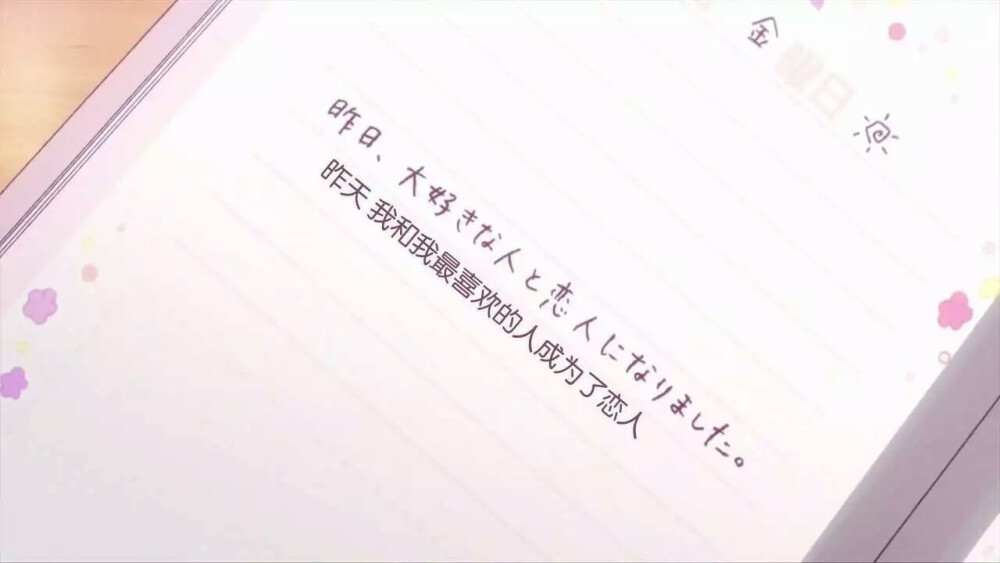 金曜日
昨日、大好きな人と恋人になりました。
昨天 我和我最喜欢的人成为了恋人